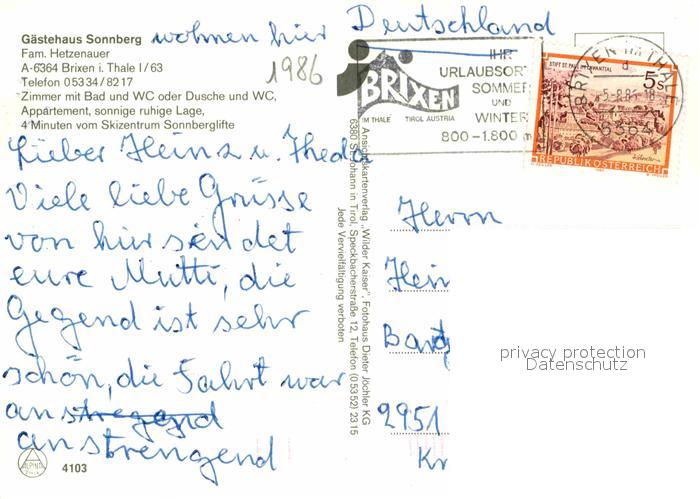 Deutschland
Gästehaus Sonnberg wohnen hier
Fam. Hetzenauer
A-6364 Brixen i. Thale I/63
Telefon 05334/8217
Zimmer mit Bad und WC oder Dusche und WC,
Appartement, sonnige ruhige Lage,
4 Minuten vom Skizentrum Sonnberglifte
1986
Lieber Heinz u. Theda
Viele liebe Grüsse
von hier sendet
eure Mutti, die
Gegend ist sehr
schön, die Fahrt war
anstregend
anstrengend
ALPINA
4103
Ansichtskartenverlag „Wilder Kaiser", Fotohaus Dieter Jöchler KG
6380 St. Johann in Tirol, Speckbacherstraße 12, Telefon (05352) 2315
Jede Vervielfältigung verboten
BRIXEN
IM THALE TIROL AUSTRIA
IHR
URLAUBSORT
SOMMER
UND
WINTER
800-1.800 m
BRIXEN IM THALE
6364
STIFT ST. PAUL IM LAVANTTAL
5s
REPUBLIK ÖSTERREICH
Herrn
Hein
2951
Kr
privacy protection
Datenschutz